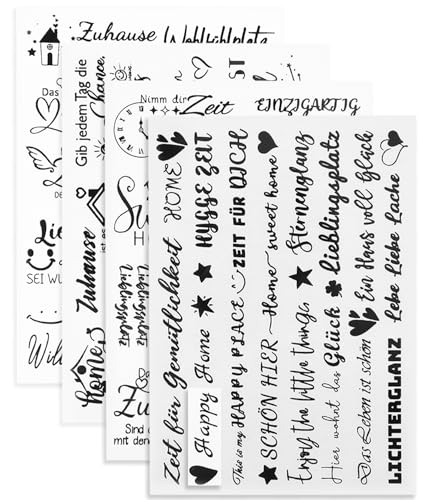 Zuhause Wohlfühlplatz
Das
DE
SEI WU
Will
Gib jedem Tag die
Chance,
ist es
Zuhause
home
ST
Nimm dir Zeit
EINZIGARTIG
HO
Lieblingsplatz
Lieblingsplatz
Zu
Sind
mit dene
Zeit für Gemütlichkeit HOME
Happy Home
HYGGE ZEIT
This is my HAPPY PLACE
ZEIT FÜR DICH
SCHÖN HIER
Home sweet home
Enjoy the little things
Sternenglanz
Hier wohnt das Glück
Lieblingsplatz
Das Leben ist schön
Ein Haus voll Glück
LICHTERGLANZ
Lebe Liebe Lache